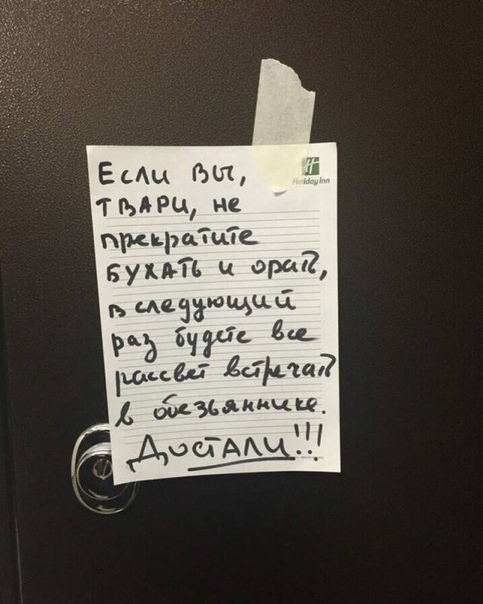 Holiday Inn
Если вы,
ТВАРИ, не
прекратите
БУХАТЬ и орать,
в следующий
раз будете все
рассвет встречать
в обезьяннике.
ДОСТАЛИ!!!